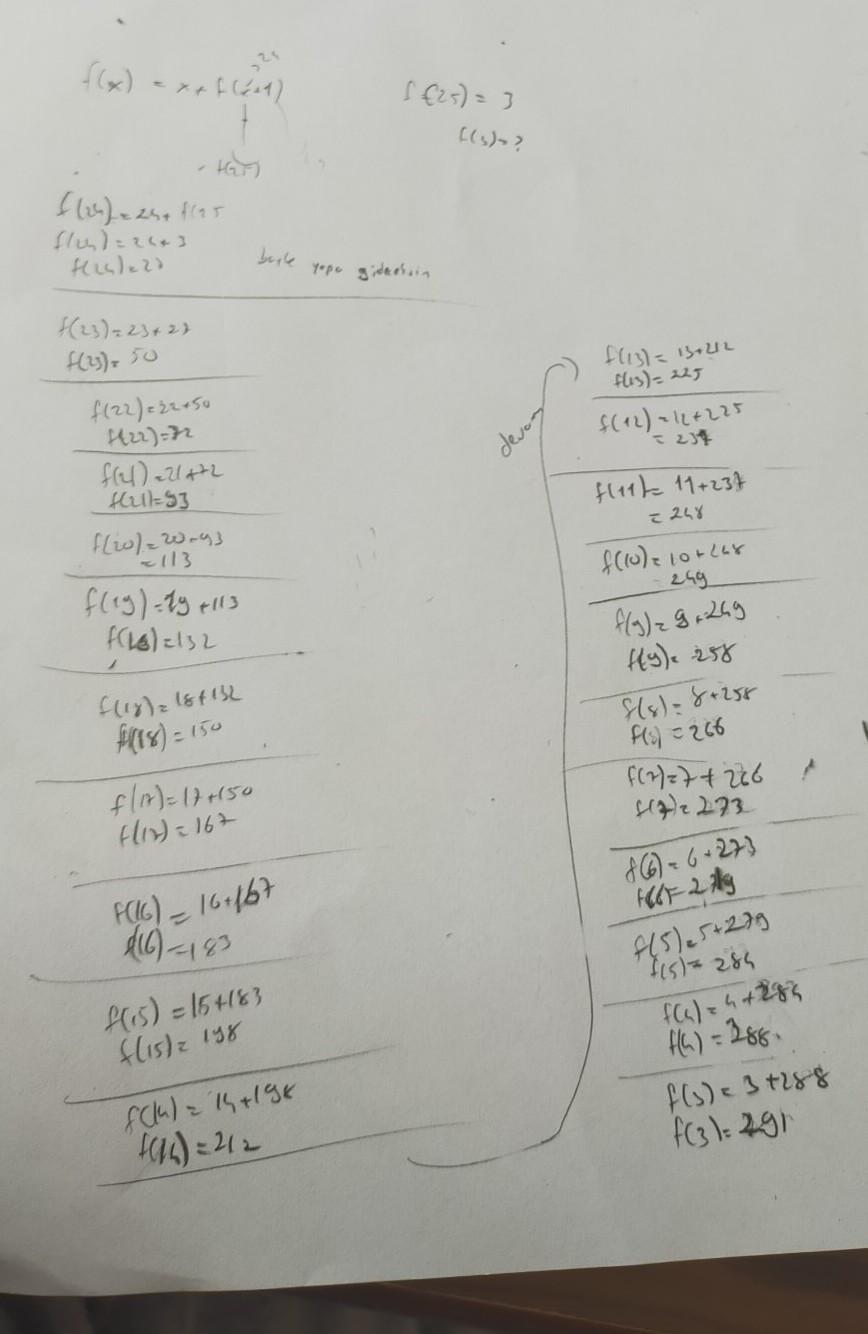 f(x) = x + f(x+1)
24
f(25) = 3
f(3) = ?
f(25)
f(24) = 24 + f(25
f(24) = 24 + 3
f(24) = 27
yapa
f(23) = 23 + 27
f(23) = 50
f(22) = 22 + 50
f(22) = 72
f(21) = 21 + 72
f(21) = 93
f(20) = 20 + 93
= 113
f(19) = 19 + 113
f(19) = 132
f(18) = 18 + 132
f(18) = 150
f(17) = 17 + 150
f(17) = 167
f(16) = 16 + 167
f(16) = 183
f(15) = 15 + 183
f(15) = 198
f(14) = 14 + 198
f(14) = 212
devam
f(13) = 13 + 212
f(13) = 225
f(12) = 12 + 225
= 237
f(11) = 11 + 237
= 248
f(10) = 10 + 248
249
f(9) = 9 + 249
f(9) = 258
f(8) = 8 + 258
f(8) = 266
f(7) = 7 + 266
f(7) = 273
f(6) = 6 + 273
f(6) = 279
f(5) = 5 + 279
f(5) = 284
f(4) = 4 + 284
f(4) = 288
f(3) = 3 + 288
f(3) = 291